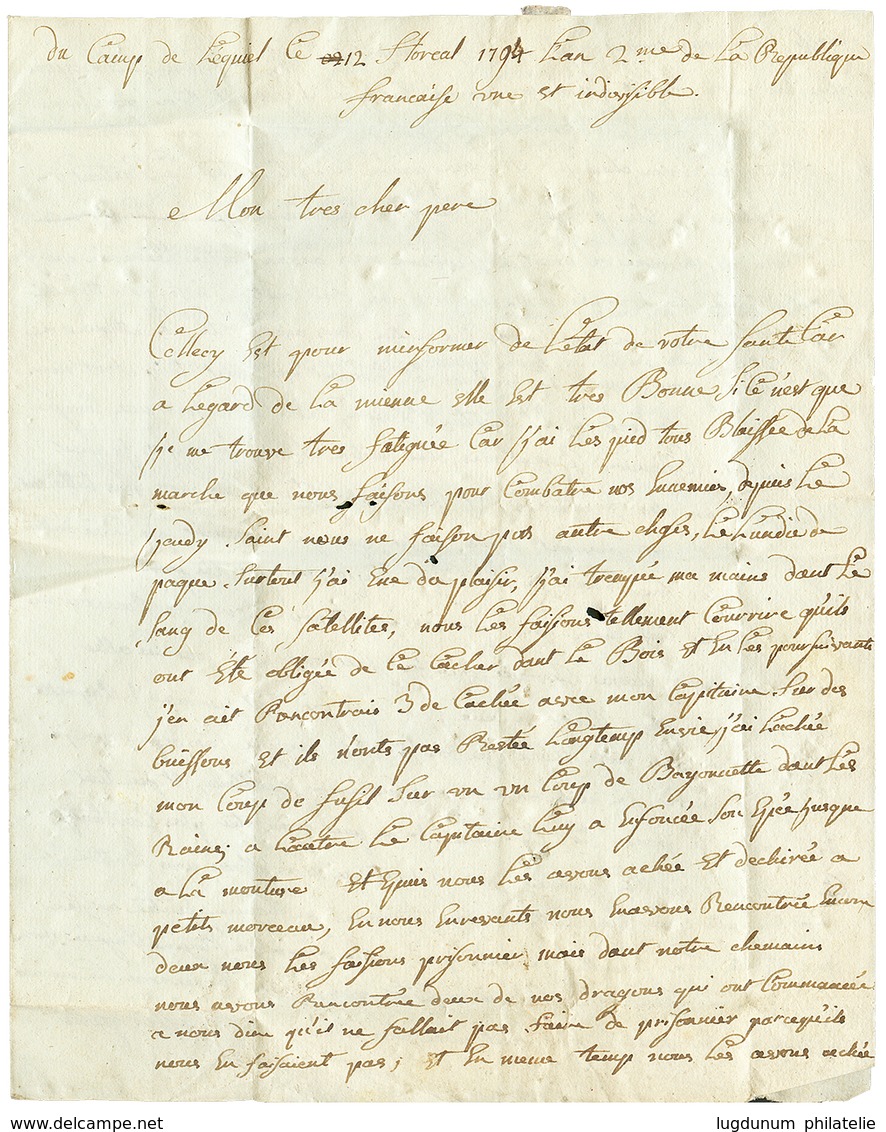 du Camp de Lequiel Ce 12 floreal 1794 Lan 2me de La Republique
francaise une et indivisible.
Mon tres cher pere
Cellecy Est pour minformer de Létat de votre santé Car
a Legard de La mienne elle Est tres Bonne Si Ce n'est que
je me trouve tres fatiguée Car j'ai Les pied tous Blaissée de La
marche que nous faisons pour Combatre nos Ennemies, depuis Le
jeudy Saint nous ne faison pas autre choses, Le Lundie de
paque Surtout j'ai Eue du plaisir, j'ai trempée ma mains dant Le
sang de Ces satellites, nous Les faisions tellement Courrire qu'ils
ont Eté obligée de Ce Cacher dant Le Bois et En Les poursuivants
j'en ait Rencontrais 3 de Cachée avec mon Capitaine Sur des
buissons et ils n'onts pas Restée Longtemp Envie, j'ai Lachée
mon Coup de fusil Sur un un Coup de Bayonnette dant Les
Raines a Lautre Le Capitaine Luy a Enfoncée Son Epée jusque
a La monture Et Epuis nous Les avons achée Et dechirée a
petits morceau, En nous Enrevants nous Enavons Rencontrée Encore
deux nous Les faisions prisonnier mais dant notre chemains
nous avons Rencontrée deux de nos dragons qui ont Commancée
a nous dire qu'il ne fallait pas faire de prisonnier parcequ'ils
nous En faisaient pas; et En meme temp nous Les avons achée
www.delcampe.net
lugdunum philatelie